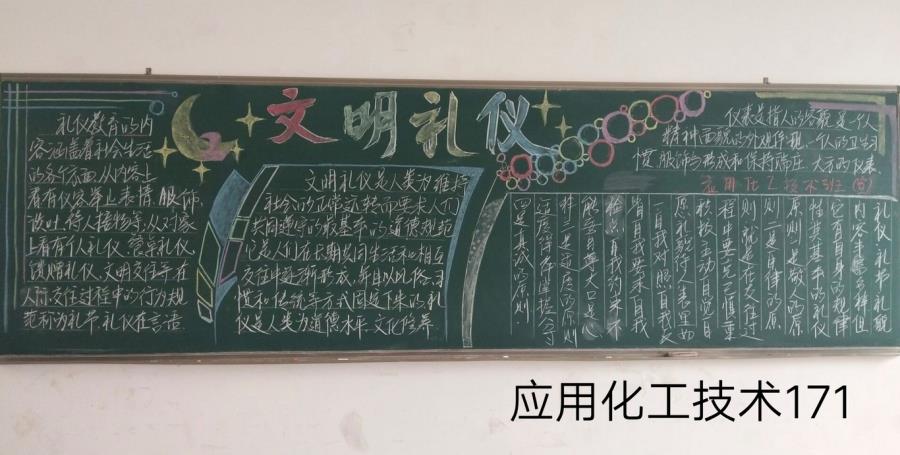 文明礼仪
礼仪教育的内
容涵盖着社会生活
的各个方面。从内容上
看有仪容举止、表情、服饰、
谈吐、待人接物等；从对象
上看有个人礼仪、餐桌礼仪、
馈赠礼仪、文明交往等。在
人际交往过程中的行为规
范称为礼节，礼仪在言语
文明礼仪是人类为维持
社会的正常运转而要求人们
共同遵守的最基本的道德规范
它是人们在长期共同生活和相互
交往中逐渐形成，并且以风俗、习
惯和传统等方式固定下来的。礼
仪是人类为道德水平、文化修养
仪表是指人的容貌，是一个人
精神面貌的外观体现。一个人的卫生习
惯、服饰与形成和保持端庄、大方的仪表
应用化工技术
礼仪、礼节、礼貌
内容丰富多样，但
它有自身的规律
性，其基本的礼仪
原则：一是敬人的原
则；二是自律的原
则，就是在交往过
程中要克己、慎重
积极主动、自觉自
愿、礼貌待人、表里如
一，自我对照，自我反
省，自我要求，自我
检点，自我约束，不
能妄自尊大，口是
心非；三是适度的原则，
适度得体，掌握分寸；
四是真诚的原则
应用化工技术171